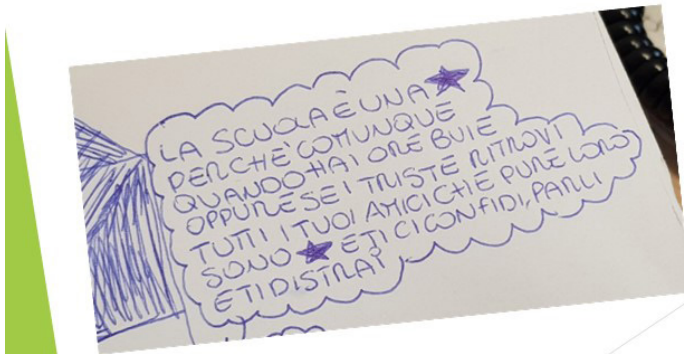 LA SCUOLA È UNA ★
PERCHÈ COMUNQUE
QUANDO HAI ORE BUIE
OPPURE SEI TRISTE RITROVI
TUTTI I TUOI AMICI CHE PURE LORO
SONO ★ E TI CI CONFIDI, PARLI
E TI DISTRAI